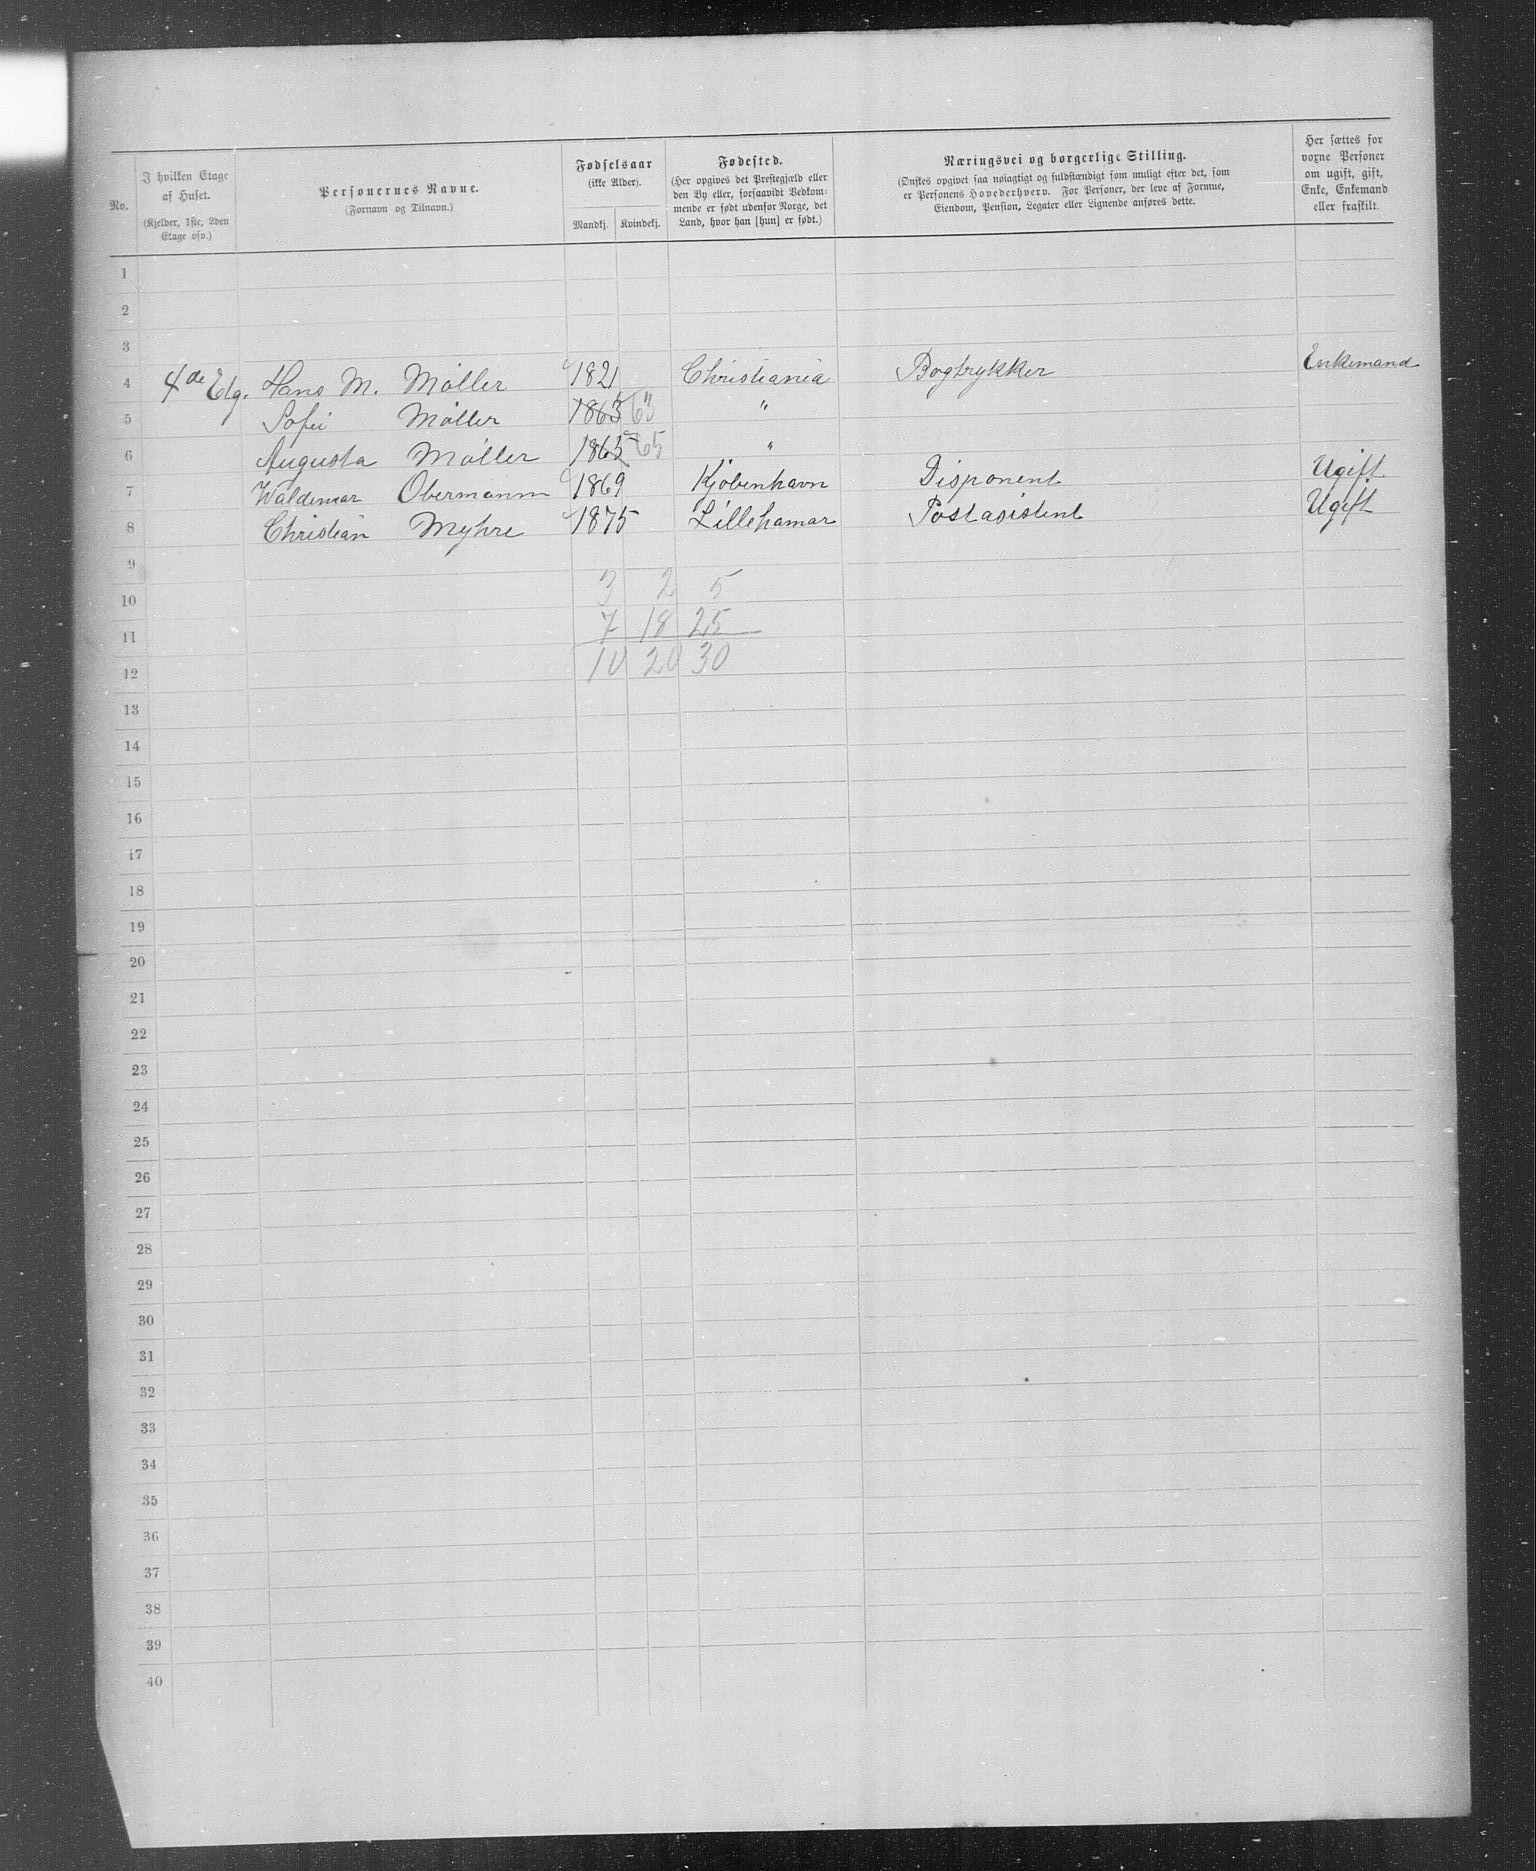 No. | I hvilken Etage af Huset. (Kjelder, 1ste, 2den Etage osv.) | Personernes Navne. (Fornavn og Tilnavn.) | Fødselsaar (ikke Alder). Mandkj. | Kvindekj. | Fødested. (Her opgives det Prestegjæld eller den By eller, forsaavidt Vedkommende er født udenfor Norge, det Land, hvor han [hun] er født.) | Næringsvei og borgerlige Stilling. (Ønskes opgivet saa nøiagtigt og fuldstændigt som muligt efter det, som er Personens Hovederhverv. For Personer, der leve af Formue, Eiendom, Pension, Legater eller Lignende anføres dette.) | Her sættes for voxne Personer om ugift, gift, Enke, Enkemand eller fraskilt.
1
2
3
4 4de Etg. Hans M. Møller 1821 Christiania Bogtrykker Enkemand
5 Sofie Møller 1863 63 "
6 Augusta Møller 1865 65 "
7 Waldemar Obermann 1869 Kjøbenhavn Disponent Ugift
8 Christian Myhre 1875 Lillehamar Postasistent Ugift
9
10 3 2 5
11 7 18 25
12 10 20 30
13
14
15
16
17
18
19
20
21
22
23
24
25
26
27
28
29
30
31
32
33
34
35
36
37
38
39
40